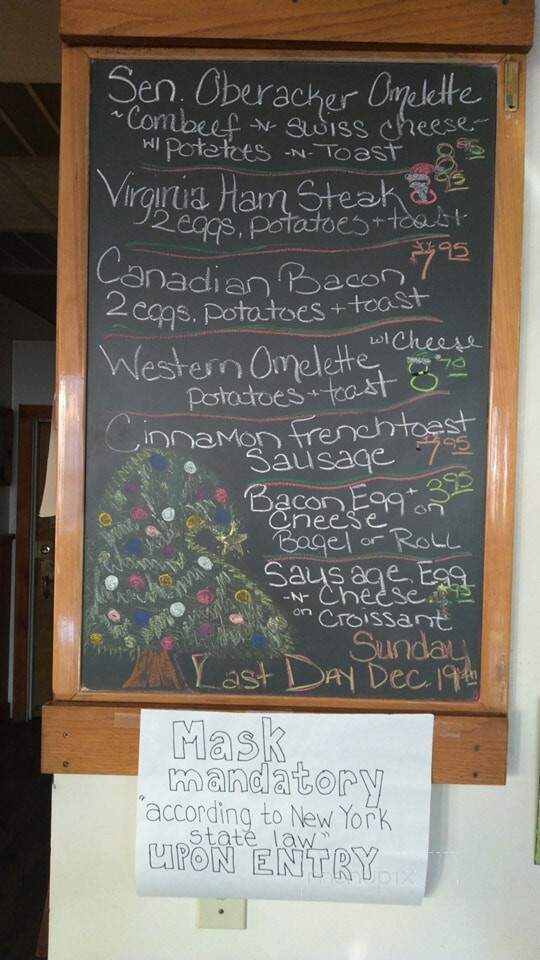 Sen. Oberacker Omelette
~Cornbeef -N- Swiss cheese~
w/ potatoes -N- Toast 8.95
Virginia Ham Steak
2 eggs, potatoes + toast
Canadian Bacon 7.95
2 eggs, potatoes + toast
Western Omelette w/ Cheese
potatoes + toast
Cinnamon Frenchtoast
Sausage 7.95
Bacon Egg + 3.95
Cheese on
Bagel or Roll
Sausage, Egg
-N- Cheese
on Croissant
Sunday
Last Day Dec. 19th
Mask
mandatory
"according to New York
state law"
UPON ENTRY
menupix